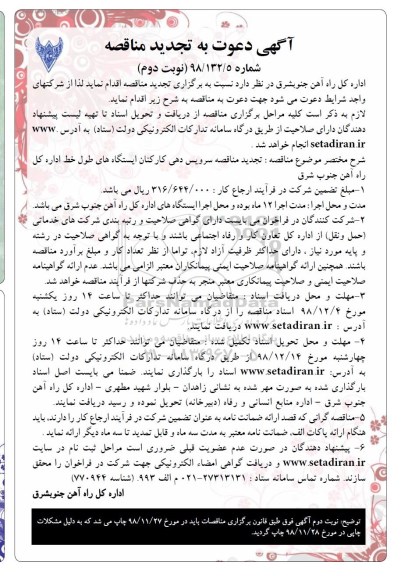 آگهی دعوت به تجدید مناقصه
شماره ۹۸/۱۳۲/۵ (نوبت دوم)
اداره کل راه آهن جنوبشرق در نظر دارد نسبت به برگزاری تجدید مناقصه اقدام نماید لذا از شرکتهای
واجد شرایط دعوت می شود جهت دعوت به مناقصه به شرح زیر اقدام نماید.
لازم به ذکر است کلیه مراحل برگزاری مناقصه از دریافت و تحویل اسناد تا تهیه لیست پیشنهاد
دهندگان دارای صلاحیت از طریق درگاه سامانه تدارکات الکترونیکی دولت (ستاد) به آدرس www.
setadiran.ir انجام خواهد شد.
شرح مختصر موضوع مناقصه : تجدید مناقصه سرویس دهی کارکنان ایستگاه های طول خط اداره کل
راه آهن جنوب شرق
۱-مبلغ تضمین شرکت در فرآیند ارجاع کار : ۳۱۶/۶۴۴/۰۰۰ ریال می باشد.
مدت و محل اجرا: مدت اجرا ۱۲ ماه بوده و محل اجرا ایستگاه های اداره کل راه آهن جنوب شرق می باشد.
۲-شرکت کنندگان در فراخوان می بایست دارای گواهی صلاحیت و رتبه بندی شرکت های خدماتی
(حمل ونقل) از اداره کل تعاون کار و رفاه اجتماعی باشند و با توجه به گواهی صلاحیت در رشته
و پایه مورد نیاز ، دارای حداکثر ظرفیت آزاد لازم، تواما از نظر تعداد کار و مبلغ برآورد مناقصه
باشند. همچنین ارائه گواهینامه صلاحیت ایمنی پیمانکاران معتبر الزامی می باشد. عدم ارائه گواهینامه
صلاحیت ایمنی و صلاحیت پیمانکاری معتبر منجر به حذف شرکتها از فرآیند مناقصه خواهد شد.
۳-مهلت و محل دریافت اسناد : متقاضیان می توانند حداکثر تا ساعت ۱۴ روز یکشنبه
مورخ ۹۸/۱۲/۴ اسناد مناقصه را از درگاه سامانه تدارکات الکترونیکی دولت (ستاد) به
آدرس : www.setadiran.ir دریافت نمایند.
۴- مهلت و محل تحویل اسناد تکمیل شده : متقاضیان می توانند حداکثر تا ساعت ۱۴ روز
چهارشنبه مورخ ۹۸/۱۲/۱۴ از طریق درگاه سامانه تدارکات الکترونیکی دولت (ستاد)
به آدرس: www.setadiran.ir اسناد را بارگذاری نمایند. ضمنا می بایست اصل اسناد
بارگذاری شده به صورت مهر شده به نشانی زاهدان - بلوار شهید مطهری - اداره کل راه آهن
جنوب شرق - اداره منابع انسانی و رفاه (دبیرخانه) تحویل نموده و رسید دریافت نمایند.
۵-مناقصه گرانی که قصد ارائه ضمانت نامه به عنوان تضمین شرکت در فرآیند ارجاع کار را دارند، باید
هنگام ارائه پاکات الف، ضمانت نامه معتبر به مدت سه ماه و قابل تمدید تا سه ماه دیگر ارائه نماید .
۶- پیشنهاد دهندگان در صورت عدم عضویت قبلی ضروری است مراحل ثبت نام در سایت
www.setadiran.ir و دریافت گواهی امضاء الکترونیکی جهت شرکت در فراخوان را محقق
سازند. شماره تماس سامانه ستاد : ۲۷۳۱۳۱۳۱-۰۲۱ م الف ۹۹۳ (شناسه ۷۷۰۹۴۴)
اداره کل راه آهن جنوبشرق
توضیح: نوبت دوم آگهی فوق طبق قانون برگزاری مناقصات باید در مورخ ۹۸/۱۱/۲۷ چاپ می شد که به دلیل مشکلات
چاپی در مورخ ۹۸/۱۱/۲۸ چاپ گردید.